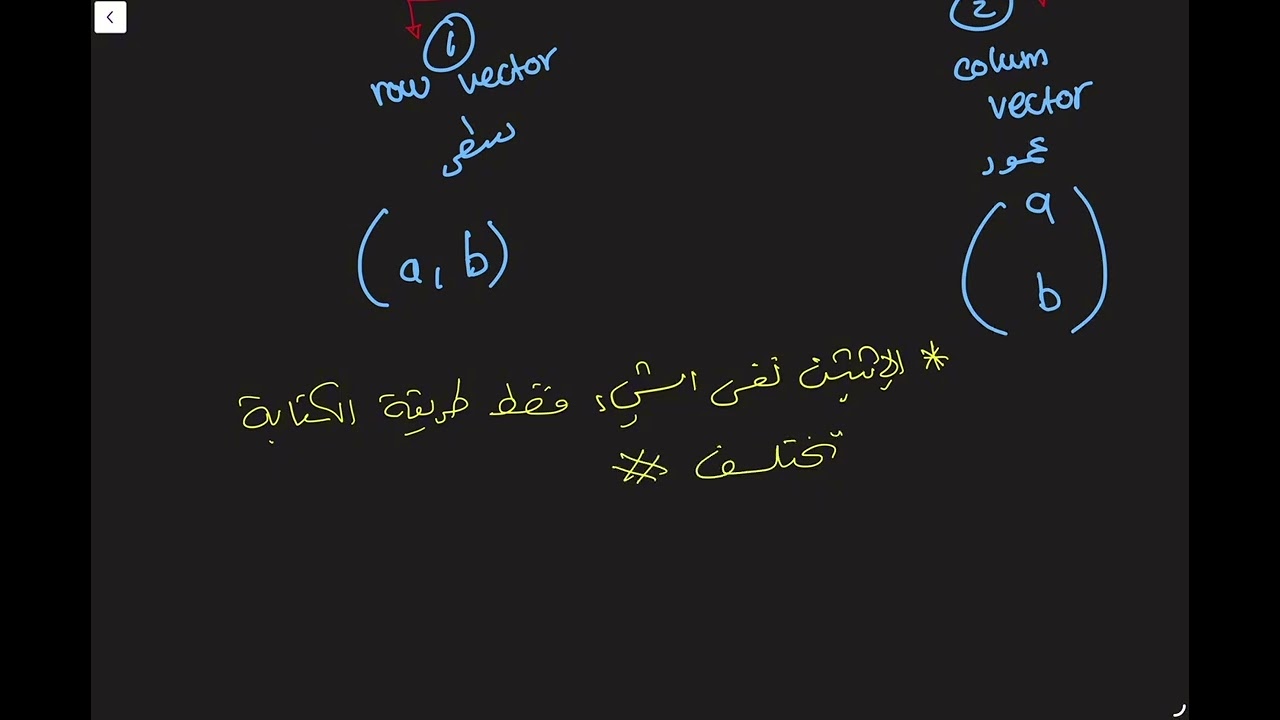 ①
row vector
سطر
(a, b)
②
colum
vector
عمود
(a
b)
* الإثنين نفس الشيء فقط طريقة الكتابة
تختلف *